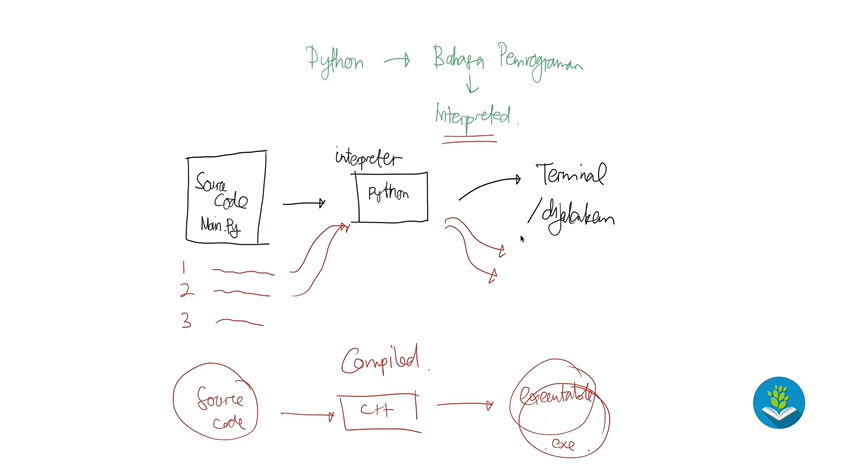 Python → Bahasa Pemrograman
↓
Interpreted.
interpreter
Source
Code
Main.Py
Python
Terminal
/dijalankan
1
2
3
Compiled.
Source
code
C++
executable
.exe